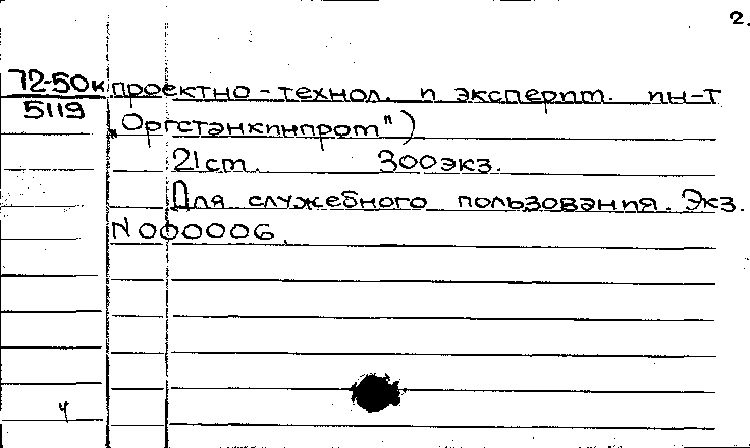 2.
72-50к проектно-технол. и эксперим. ин-т
5119 „Оргстанкинпром")
21 cm. 300экз.
Для служебного пользования. Экз.
N 000006.
4